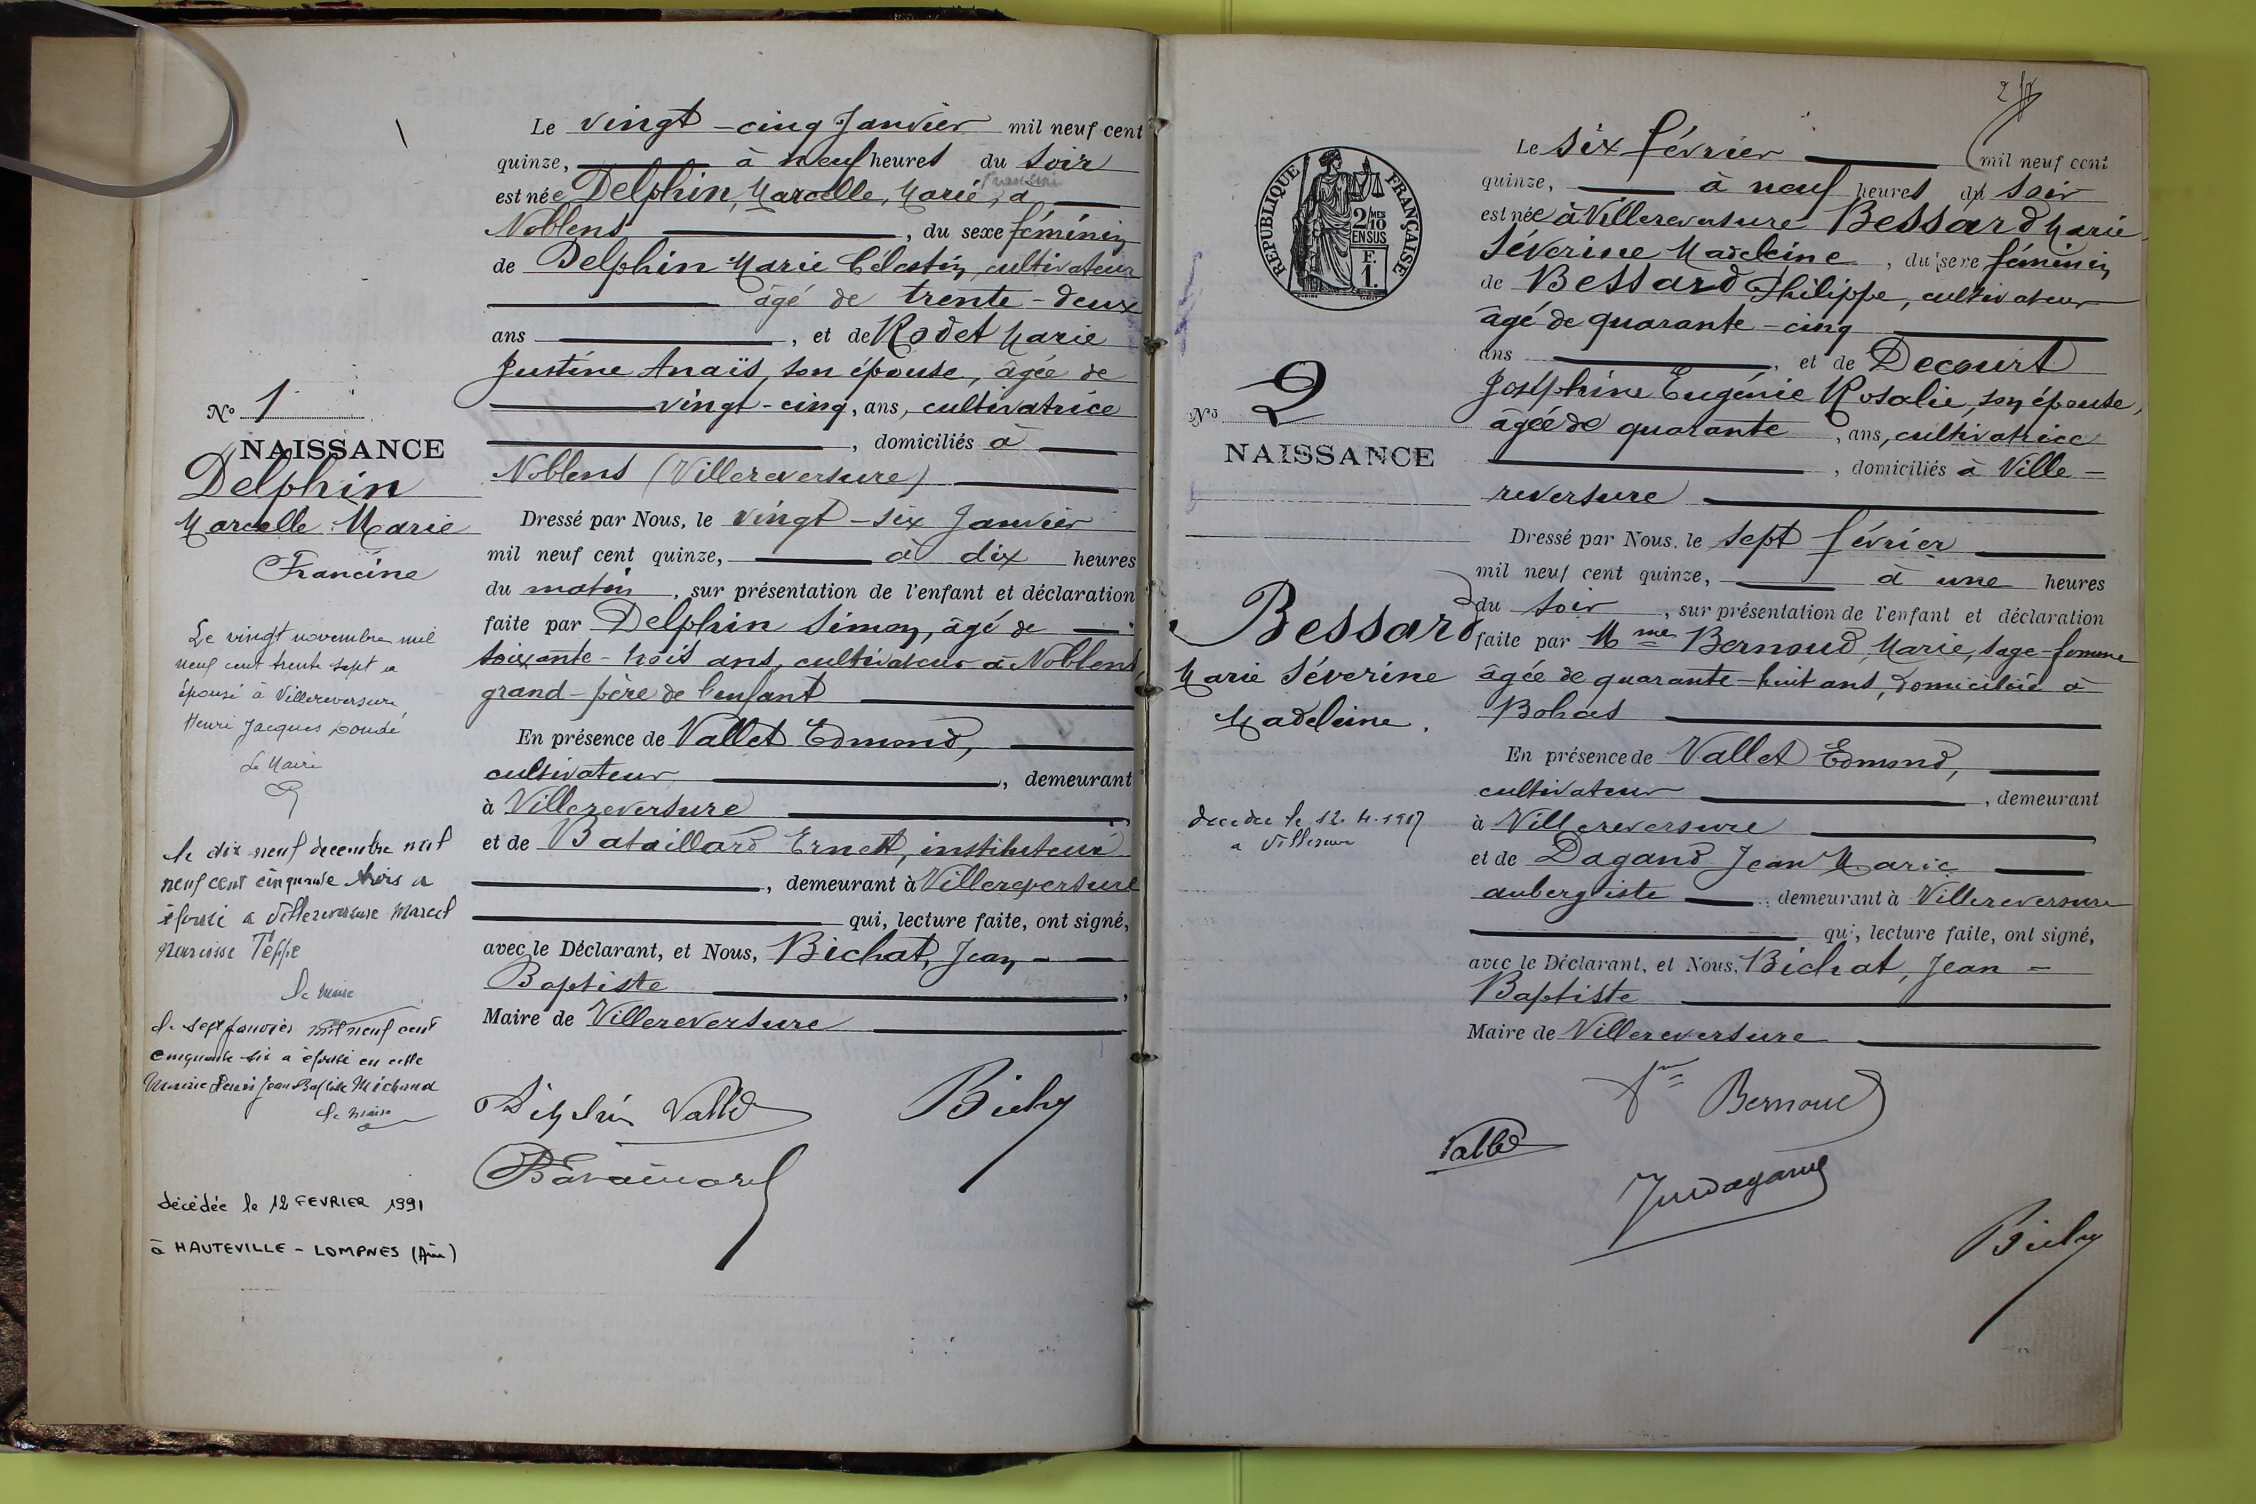 Le vingt-cinq Janvier mil neuf cent
quinze, à neuf heures du soir
Francine
est née Delphin, Marcelle, Marie, à
Noblens, du sexe féminin
de Delphin Marie Célestin, cultivateur
âgé de trente-deux
ans, et de Rodet Marie
Justine Anaïs, son épouse, âgée de
vingt-cinq, ans, cultivatrice
, domiciliés à
Noblens (Villereversure)
Dressé par Nous, le vingt-six Janvier
mil neuf cent quinze, à dix heures
du matin, sur présentation de l'enfant et déclaration
faite par Delphin Simon, âgé de
soixante-trois ans, cultivateur à Noblens
grand-père de l'enfant
En présence de Vallet Edmond,
cultivateur, demeurant
à Villereversure
et de Bataillard Ernest, instituteur
, demeurant à Villereversure
qui, lecture faite, ont signé,
avec le Déclarant, et Nous, Bichat, Jean-
Baptiste,
Maire de Villereversure
Delphin Vallet Bichat
Bataillard
No 1
NAISSANCE
Delphin
Marcelle Marie
Francine
Le vingt novembre mil
neuf cent trente sept a
épousé à Villereversure
Henri Jacques
Le Maire
le dix neuf décembre mil
neuf cent cinquante trois a
épousé a Villereversure Marcel
Narcisse Teppe
Le Maire
le sept janvier mil neuf cent
cinquante six a épousé en cette
Mairie Jean Baptiste Michaud
le Maire
décédée le 12 FEVRIER 1991
à HAUTEVILLE - LOMPNES (Ain)
2
RÉPUBLIQUE FRANÇAISE
2/MES
10
EN SUS
F.
1.
No 2
NAISSANCE
Bessard
Marie Séverine
Madeleine.
décédée le 12.4.1917
a
Le six février mil neuf cent
quinze, à neuf heures du soir
est née à Villereversure Bessard Marie
Séverine Madeleine, du sexe féminin
de Bessard Philippe, cultivateur
âgé de quarante-cinq
ans, et de Decourt
Joséphine Eugénie Rosalie, son épouse,
âgée de quarante, ans, cultivatrice
, domiciliés à Ville-
reversure
Dressé par Nous, le sept février
mil neuf cent quinze, à une heures
du soir, sur présentation de l'enfant et déclaration
faite par Mme Bernoud, Marie, sage-femme
âgée de quarante-huit ans, domiciliée à
Bohas
En présence de Vallet Edmond,
cultivateur, demeurant
à Villereversure
et de Dagand Jean Marie
aubergiste demeurant à Villereversure
qui, lecture faite, ont signé,
avec le Déclarant, et Nous, Bichat, Jean-
Baptiste
Maire de Villereversure
Bernoud
Vallet
JM Dagand
Bichat